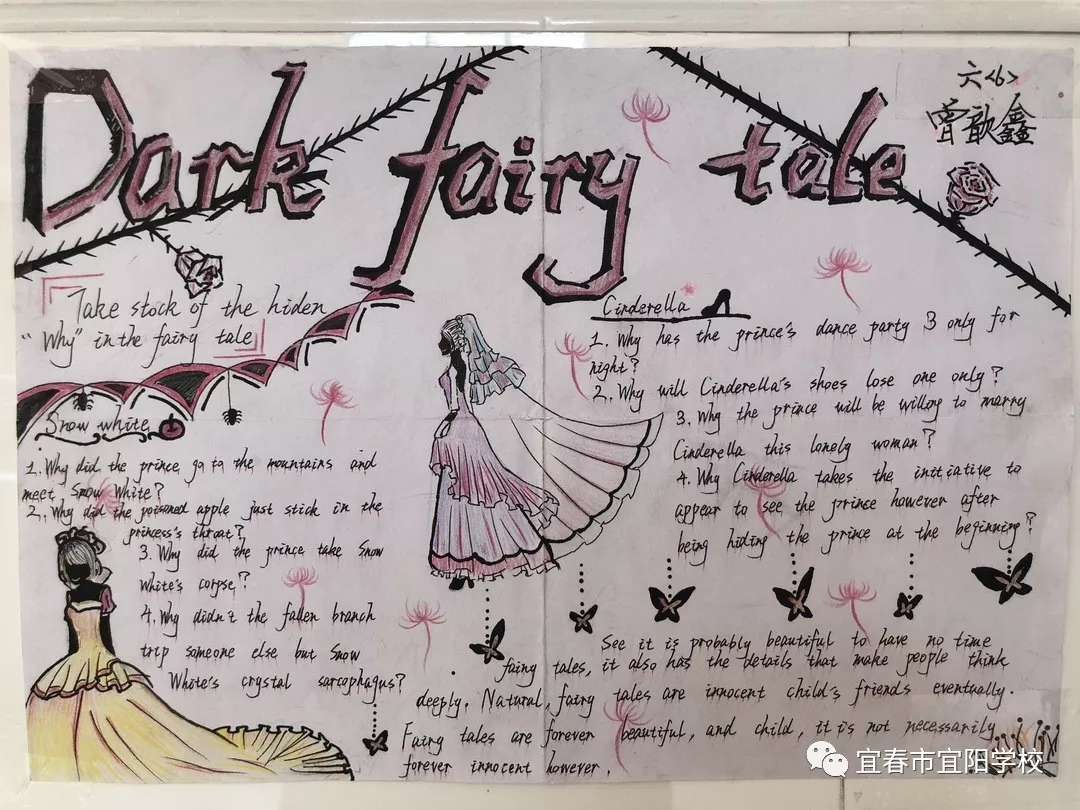 Dark fairy tale
六<6>
曾歆鑫
Take stock of the hiden
"Why" in the fairy tale
Snow white
1. Why did the prince go to the mountains and
meet Snow White?
2. Why did the poisoned apple just stick in the
princess's throat?
3. Why did the prince take Snow
White's corpse?
4. Why didn't the fallen branch
trip someone else but Snow
White's crystal sarcophagus?
Cinderella
1. Why has the prince's dance party 3 only for
night?
2. Why will Cinderella's shoes lose one only?
3. Why the prince will be willong to marry
Cinderella this lonely woman?
4. Why Cinderella takes the initiative to
appear to see the prince however after
being hiding the prince at the beginning?
See it is probably beautiful to have no time
fainy tales, it also has the details that make people think
deeply. Natural, fairy tales are innocent child's friends eventually.
Fairy tales are forever beautiful, and child, it is not necessarily
forever innocent however.
宜春市宜阳学校